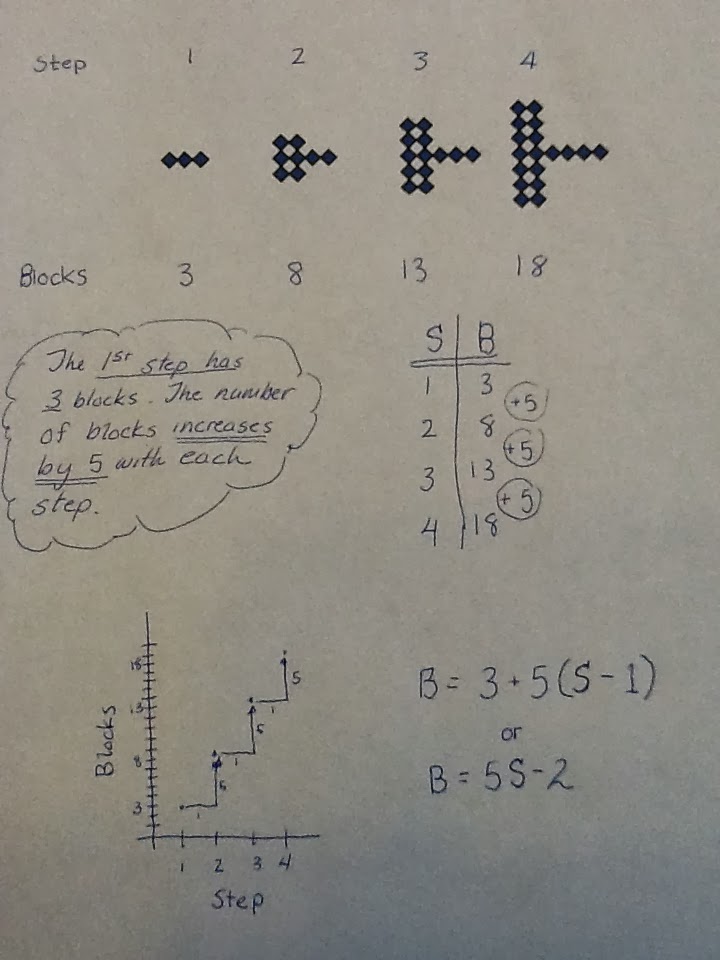 Step 1 2 3 4
Blocks 3 8 13 18
The 1st step has
3 blocks. The number
of blocks increases
by 5 with each
step.
S B
1 3
+5
2 8
+5
3 13
+5
4 18
18
13
8
3
Blocks
5
1
5
1
5
1
1 2 3 4
Step
B = 3 + 5(S - 1)
or
B = 5S - 2